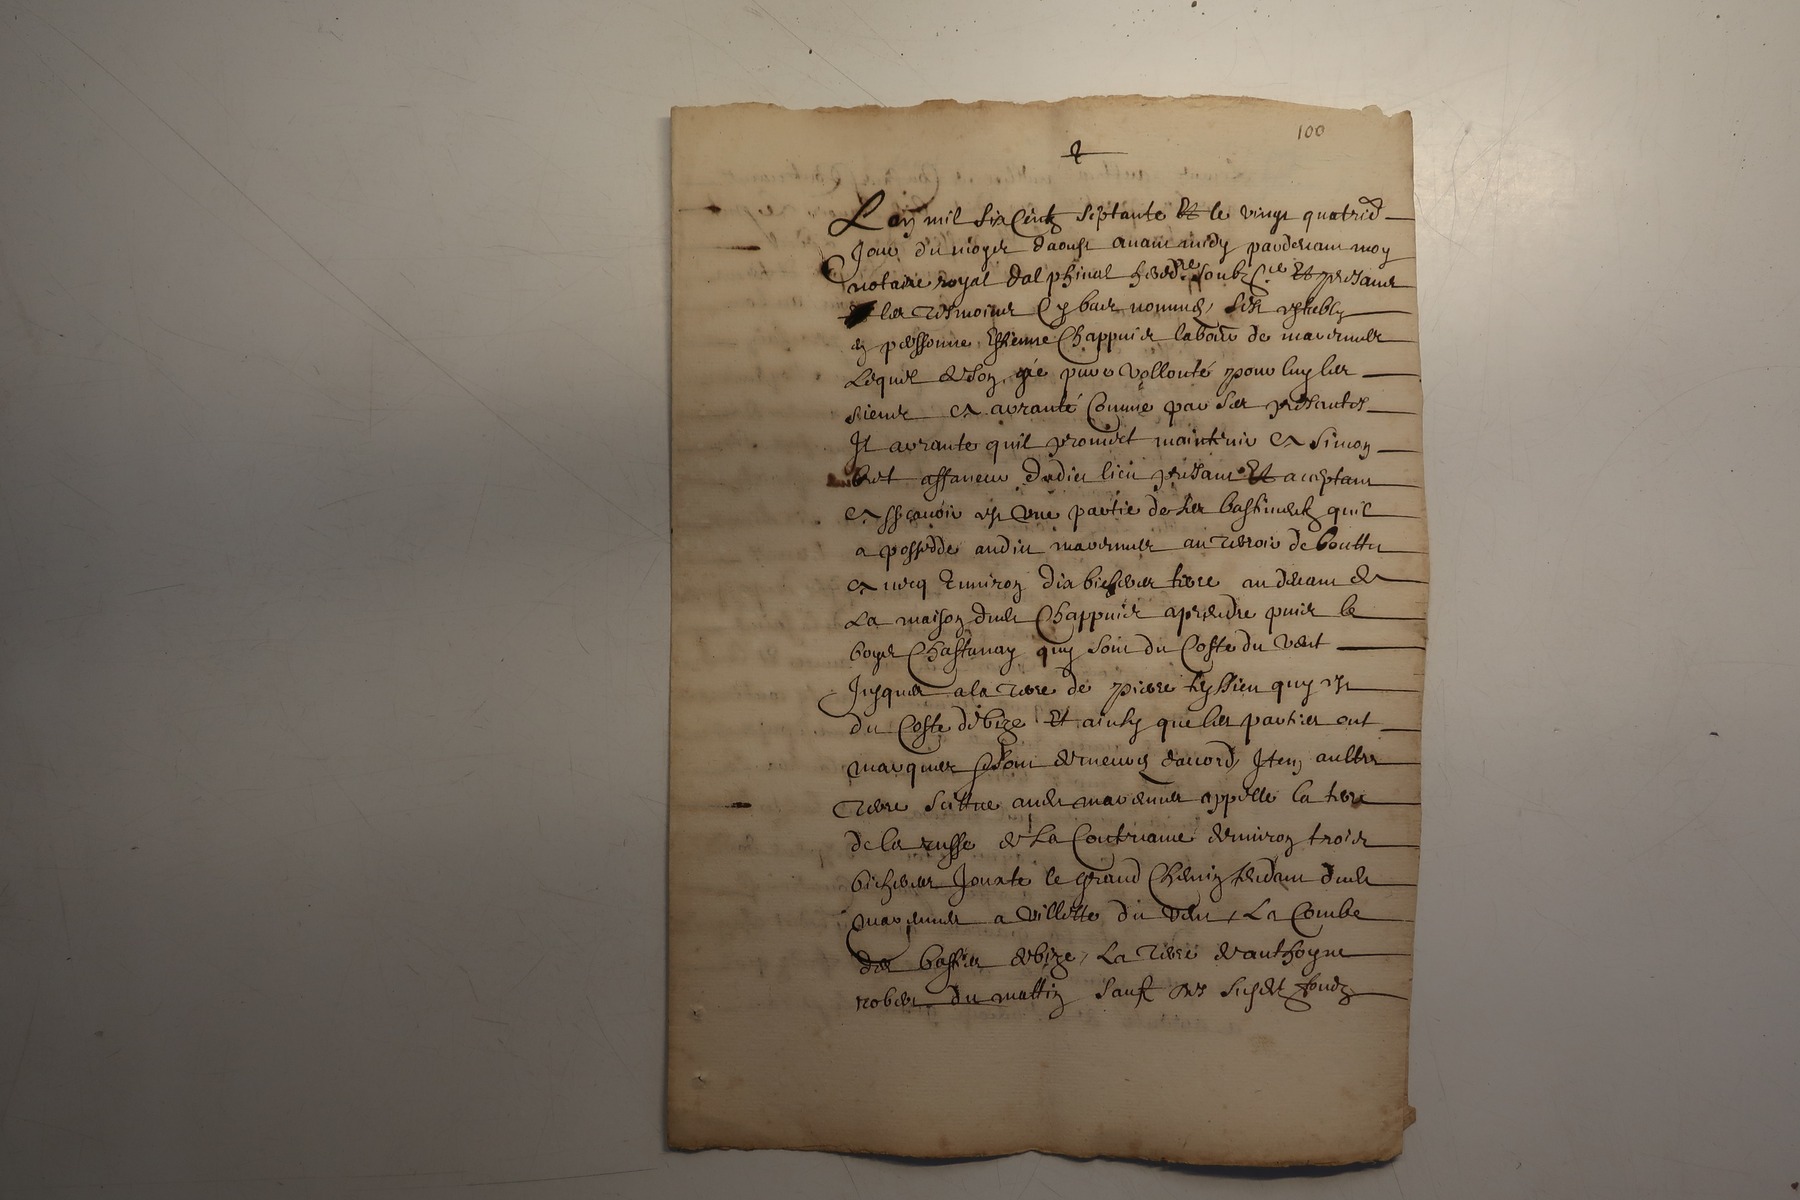 100
Lan mil six centz septante et le vingt quatrie
Jour du moys daoust avant midy pardevant moy
notaire royal dalphinal heredre soubzne et presans
les tesmoins cy bas nommes sest estably
en personne Estienne Chappuis labour de marennes
Lequel de son gré pure vollonté pour luy les
siens a arranté comme par ses presantes
Il arrante quil promet maintenir a Simon
affaneur dudict lieu presant et acceptant
assçavoir est une partie de ses bastimentz quil
a possede audict marennes au terroir de
avecq environ dix bicherees terre au devant de
La maison dudt Chappuis a prendre puis le
boys Chastanay quy sont du coste du vent
Jusques a la terre de pierre teyssieu quy est
du coste de bize et ainsy que les parties ont
marques demeures daccord, Item aultre
Terre scittue audt marennes appelle la terre
de la de La denviron trois
bicherees Jouxte le grand chemin tendant dudt
marennes a villette du vent, La Combe
des de bize, La terre danthoyne
robert du mattin sauf ses